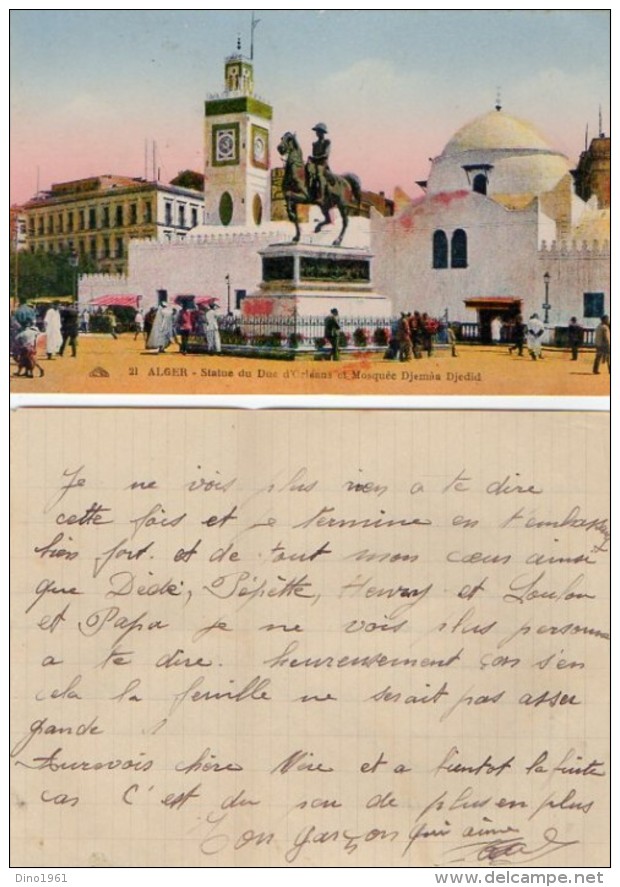 21 ALGER - Statue du Duc d'Orléans et Mosquée Djemâa Djedid
Je ne vois plus rien a te dire
cette fois et je termine en t'embassant
bien fort. et de tout mon cœur ainsi
que Dédé, Pépètte, Henry et Loulou
et Papa je ne vois plus personne
a te dire. heureusement s'en
cela la feuille ne serait pas asser
grande
Aurevois chère Mère et a bientot la fuite
cas C'est du peu de plus en plus
Ton garçon qui aime
Dino1961
delcampe.net